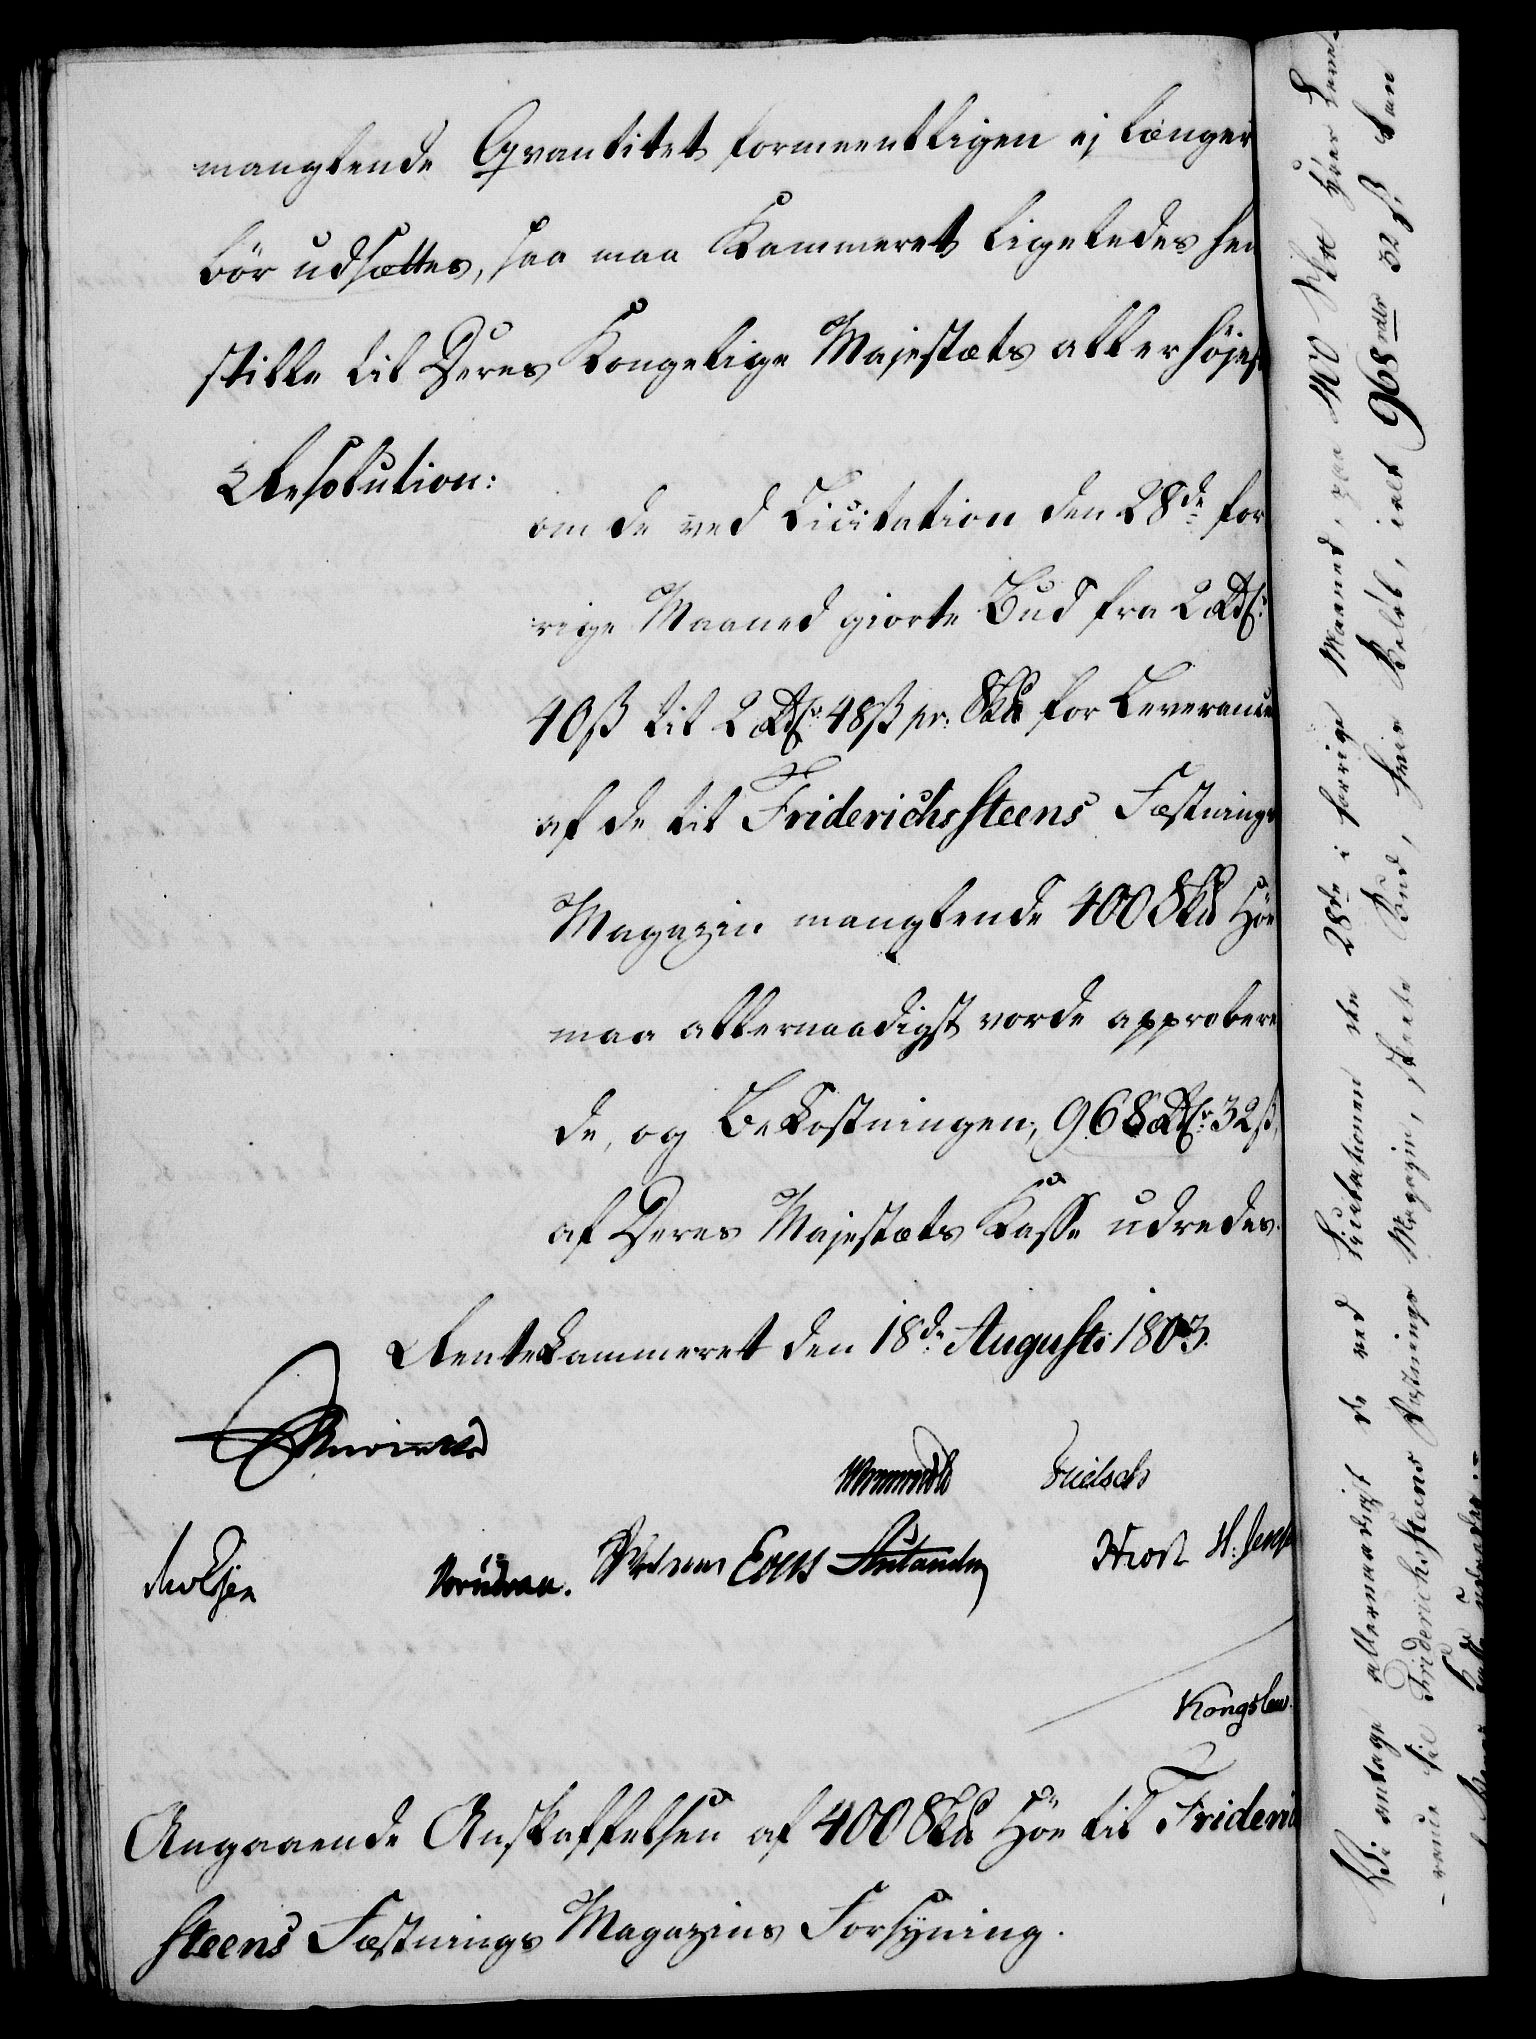 manglende Qvantitet formeentligen ej længer
bör udsættes, saa maa Kammeret ligeledes hen
stille til Deres Kongelige Majestæts allerhöjeste
Resolution:
om de ved Licitation den 28de for
rige Maaned giorte Bud fra 2 Rdlr
40 ß til 2 Rdlr 48 ß pr. Sk℔ for Leverancen
af de til Friderichssteens Fæstnings
Magazin manglende 400 Sk℔ Höe
maa allernaadigst vorde approbere
de, og Bekostningen, 968 Rdlr 32 ß,
af Deres Majestæts Kasse udredes.
Rentekammeret den 18de Augusti 1803.
Wormskiold
Evers
Hiort H: Jensen
Kongslew.
Angaaende Anskaffelsen af 400 Sk℔ Höe til Friderich
steens Fæstnings Magazins Forsyning.
Vi antage allernaadigst de ved Licitationen den 28de i forrige Maaned, paa 400 Sk℔ Höes Leve-
-rance til Friderichssteens Fæstnings Magazin, skeete Bud, hvis Belöb, ialt 968 rdlr 32 ß. kan